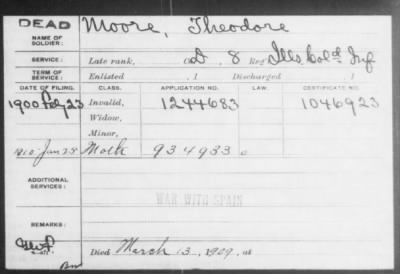 DEAD
NAME OF SOLDIER: Moore, Theodore
SERVICE: Late rank, Co D, 8 Reg't Ills. Col'd Inf
TERM OF SERVICE: Enlisted , 1 Discharged , 1
DATE OF FILING. CLASS. APPLICATION NO. LAW. CERTIFICATE NO.
1900 Feby 23 Invalid, 1244683 1046923
Widow,
Minor,
1910 Jan 28 Moth 934933
ADDITIONAL SERVICES:
WAR WITH SPAIN
REMARKS:
Died March 13, 1909, at